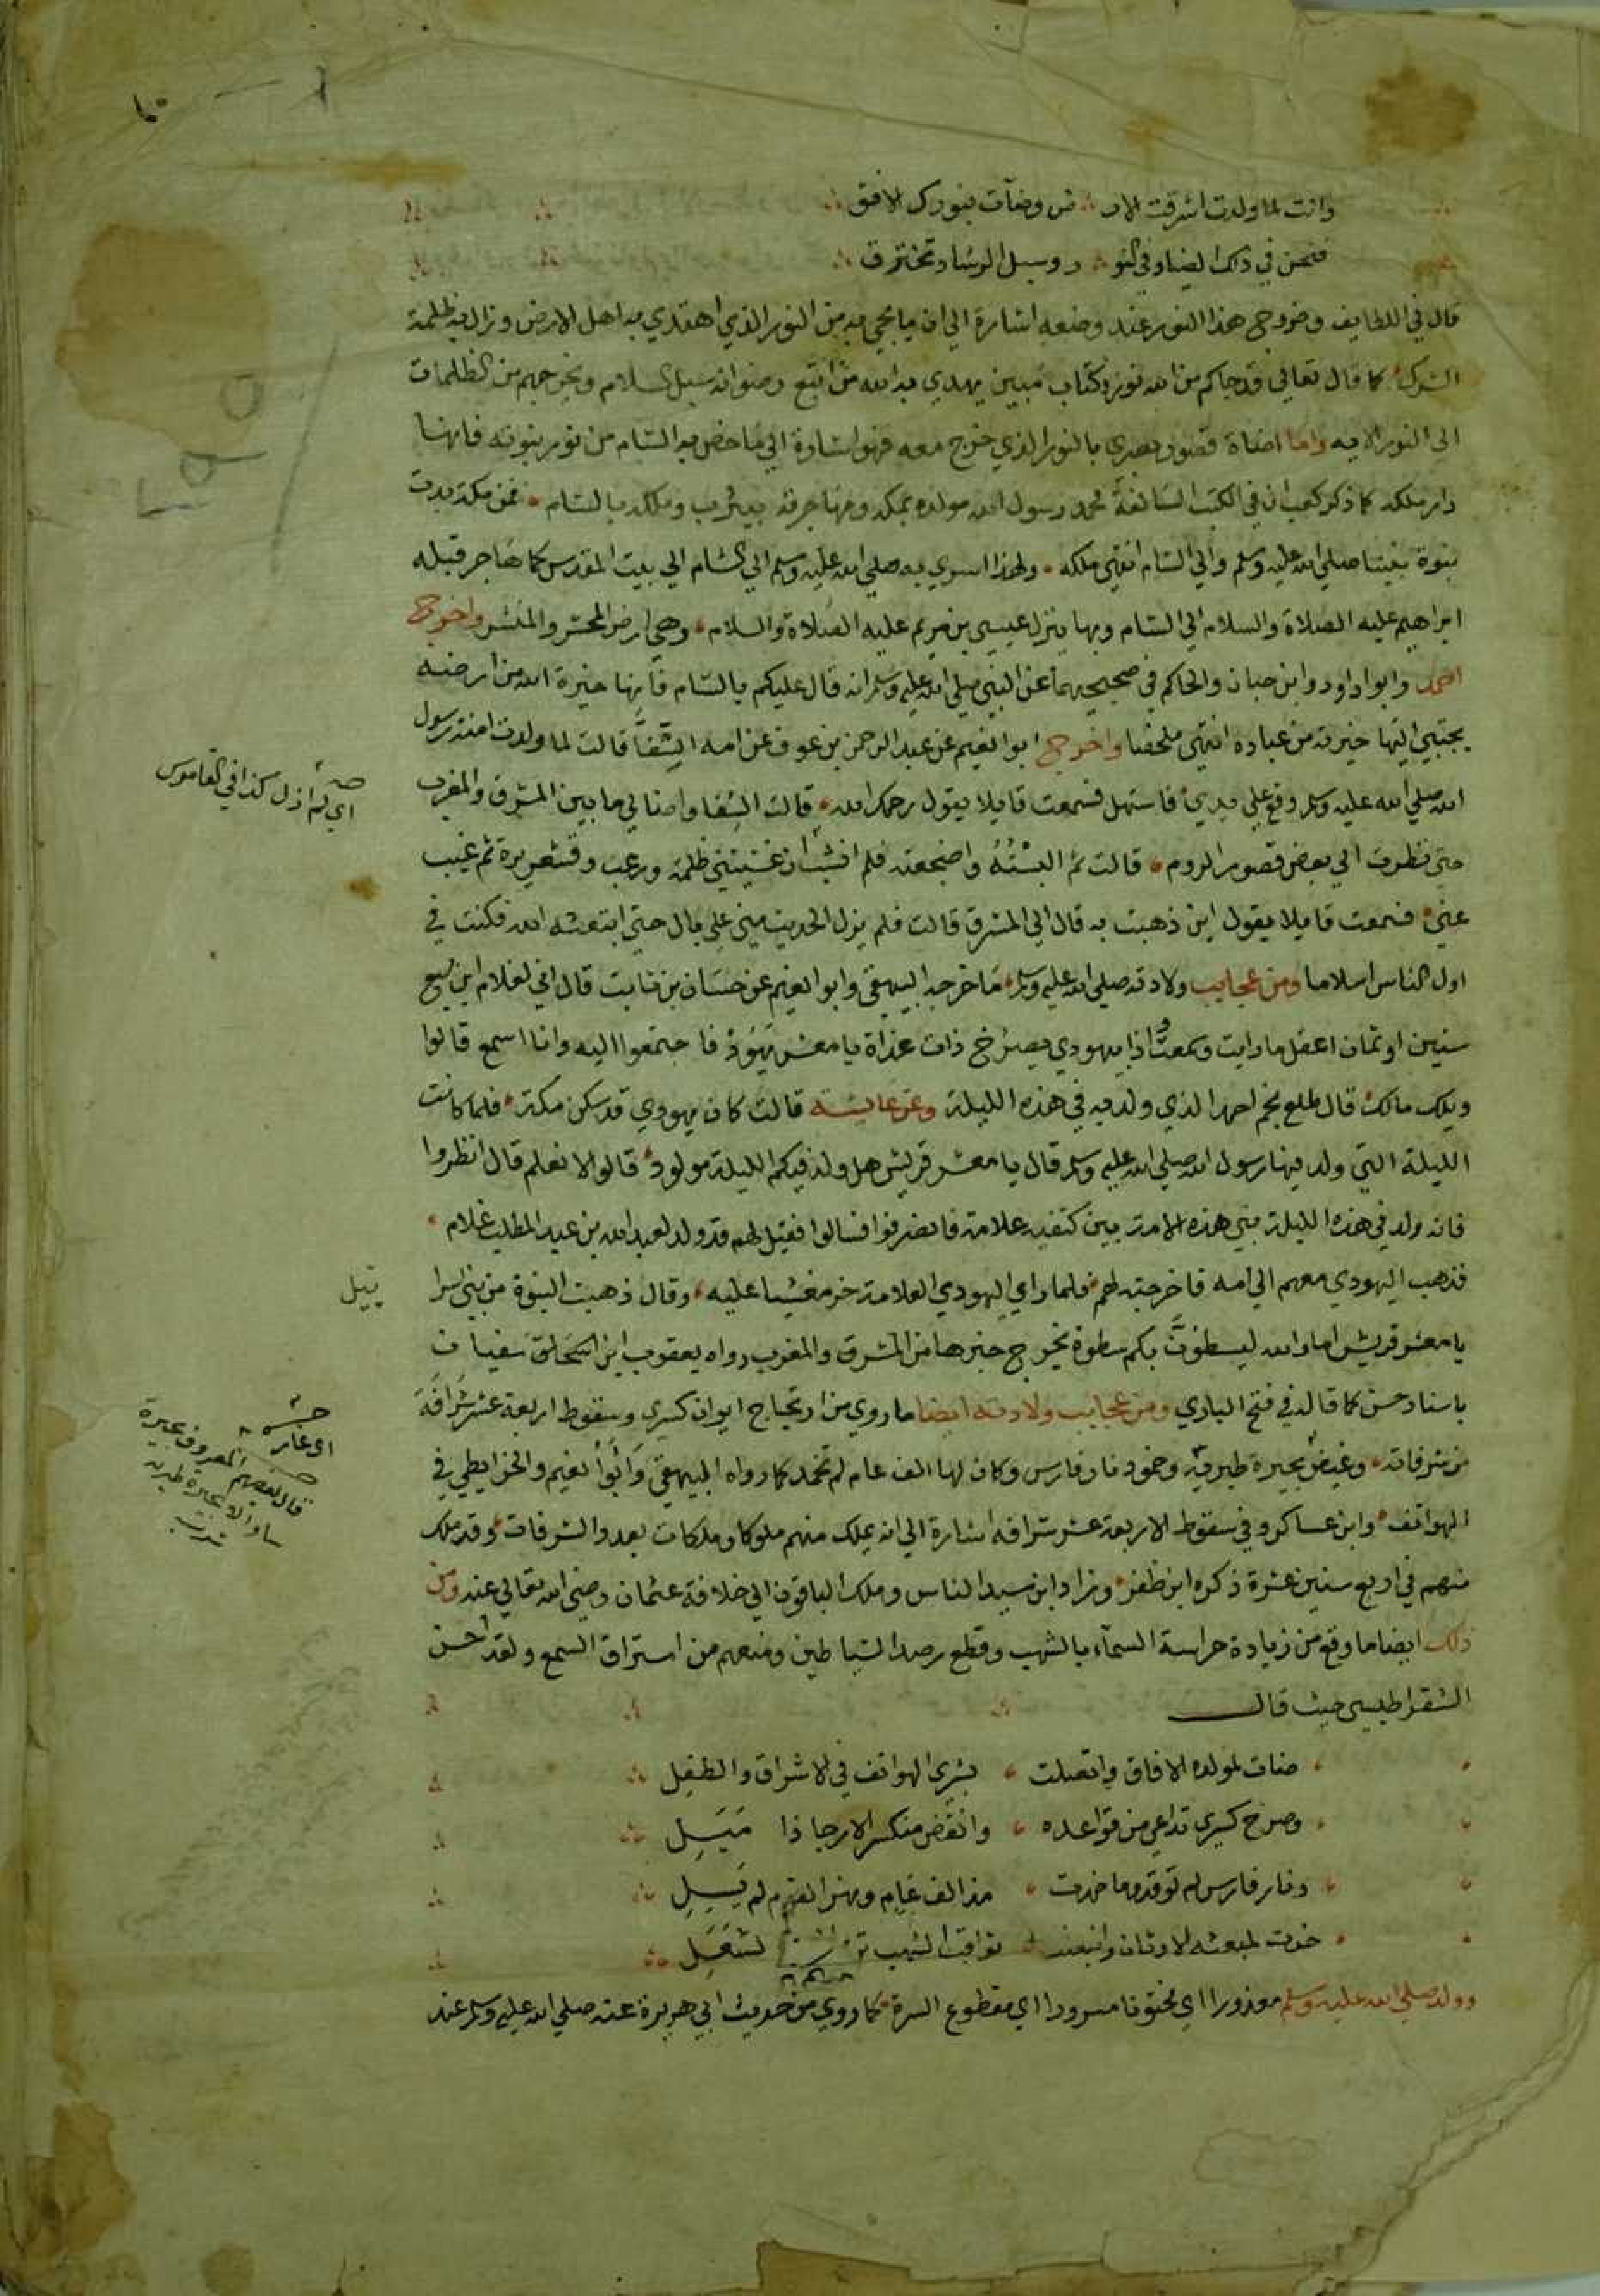 وانت لما ولدت اشرقت الار ض وضآت بنورك الافق
فنحن في ذلك الضياء وفي النو ر وسبل الرشاد نخترق
قال في اللطايف وخروج هذا النور عند وضعه اشارة الي ان ما يجي به من النور الذي اهتدي به اهل الارض وزال به ظلمة
الشرك كما قال تعالي قد جاكم من الله نور وكتاب مبين يهدي به الله من اتبع رضوانه سبل السلام ويخرجهم من الظلمات
الي النور الايه واما اضاة قصور بصري بالنور الذي خرج معه فهو اشارة الي ما خص به الشام من نور نبوته فانها
دار ملكه كما ذكر كعب ان في الكتب السالفة محمد رسول الله مولده بمكه ومهاجرته بيثرب وملكه بالشام فمن مكة بدت
نبوة نبينا صلي الله عليه وسلم والي الشام انتهي ملكه ولهذا اسري به صلي الله عليه وسلم الي الشام الي بيت المقدس كما هاجر قبله
ابراهيم عليه الصلاة والسلام الي الشام وبها ينزل عيسي بن مريم عليه الصلاة والسلام وهي ارض المحشر والمنشر واخرج
احمد وابوا داود وابن حبان والحاكم في صحيحيهما عن النبي صلي الله عليه وسلم انه قال عليكم بالشام فانها خيرة الله من ارضه
يجتبي اليها خيرته من عباده انتهي ملخصا واخرج ابو انعيم عن عبد الرحمن بن عوف عن امه الشفا قالت لما ولدت امنة رسول
الله صلي الله عليه وسلم وقع علي يدي فاستهل فسمعت قايلا يقول رحمك الله قالت الشفا واضا لي ما بين المشرق والمغرب
حتي نظرت الي بعض قصور الروم قالت ثم البسته واضجعته فلم انشب ان غشيتني ظلمة ورعب وقشعريرة ثم غيب
عني فسمعت قايلا يقول اين ذهبت به قال الي المشرق قالت فلم يزل الحديث مني علي بال حتي ابتعثه الله فكنت في
اول الناس اسلاما ومن عجايب ولادته صلي الله عليه وسلم ما خرجه البيهقي وابو النعيم عن حسان بن ثابت قال اني لغلام ابن سبع
سنين او ثمان اعقل ما رايت وسمعت اذا يهودي يصرخ ذات غداة يا معشر يهود فاجتمعوا اليه وانا اسمع قالوا
ويلك مالك قال طلع نجم احمد الذي ولد به في هذه الليلة وعن عايشه قالت كان يهودي قد سكن مكة فلما كانت
الليلة التي ولد فيها رسول الله صلي الله عليه وسلم قال يا معشر قريش هل ولد فيكم الليلة مولود قالوا لا نعلم قال انظروا
فانه ولد في هذه الليلة نبي هذه الامة بين كتفيه علامة فانصرفوا فسالوا فقيل لهم قد ولد لعبد الله بن عبد المطلب غلام
فذهب اليهودي معهم الي امه فاخرجته لهم فلما راي اليهودي العلامة خر مغشيا عليه وقال ذهبت النبوة من بني اسرا
ئيل
يا معشر قريش اما والله ليسطون بكم سطوة يخرج خبرها من المشرق والمغرب رواه يعقوب ابن اسحاق سفيان
باسناد حسن كما قاله في فتح الباري ومن عجايب ولادته ايضا ما روي من ارتجاج ايوان كسري وسقوط اربعة عشر شرافة
من شرفاته وغيض بحيرة طبرية وخمود نار فارس وكان لها الف عام لم تخمد كما رواه البيهقي وابوا نعيم والخرايطي في
الهواتف وابن عساكر وفي سقوط الاربعة عشر شرافه اشارة الي انه يملك منهم ملوكا وملكات بعدد الشرفات وقد ملك
منهم في اربع سنين عشرة ذكره ابن ظفر وزاد ابن سيد الناس وملك الباقون الي خلافة عثمان رضي الله تعالي عنه ومن
ذلك ايضا ما وقع من زيادة حراسة السمآء بالشهب وقطع رصد الشياطين ومنعهم من استراق السمع ولقد احسن
الشقراطيسي حيث قال
ضات لمولده الافاق واتصلت بشري الهواتف في الاشراق والطفل
وصرح كسري تداعي من قواعده وانقض منكسر الارجا ذا ميل
ونار فارس لم توقد وما خمدت مذ الف عام ونهر القوم لم يسل
خرت لمبعثه الاوثان وانبعثت ثواقب الشهب ترمي الجن بالشعل
وولد صلي الله عليه وسلم معذورا اي مختونا مسرورا اي مقطوع السرة كما روي من حديث ابي هريرة عنه صلي الله عليه وسلم عند
اي لم ازل كذا في القاموس
اي غار
قال بعضهم المعروف بحيرة
ساوة لا بحيرة طبريه